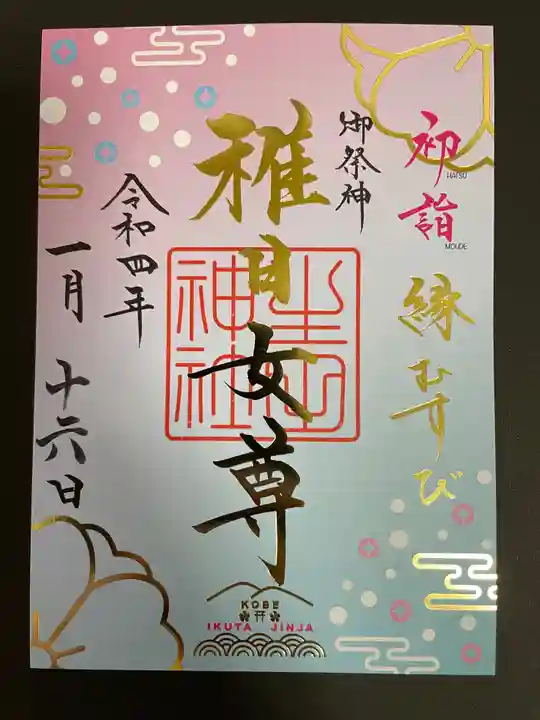 初詣 縁むすび
HATSU
MOUDE
御祭神
稚日女尊
生田神社
令和四年
一月十六日
KOBE
IKUTA JINJA